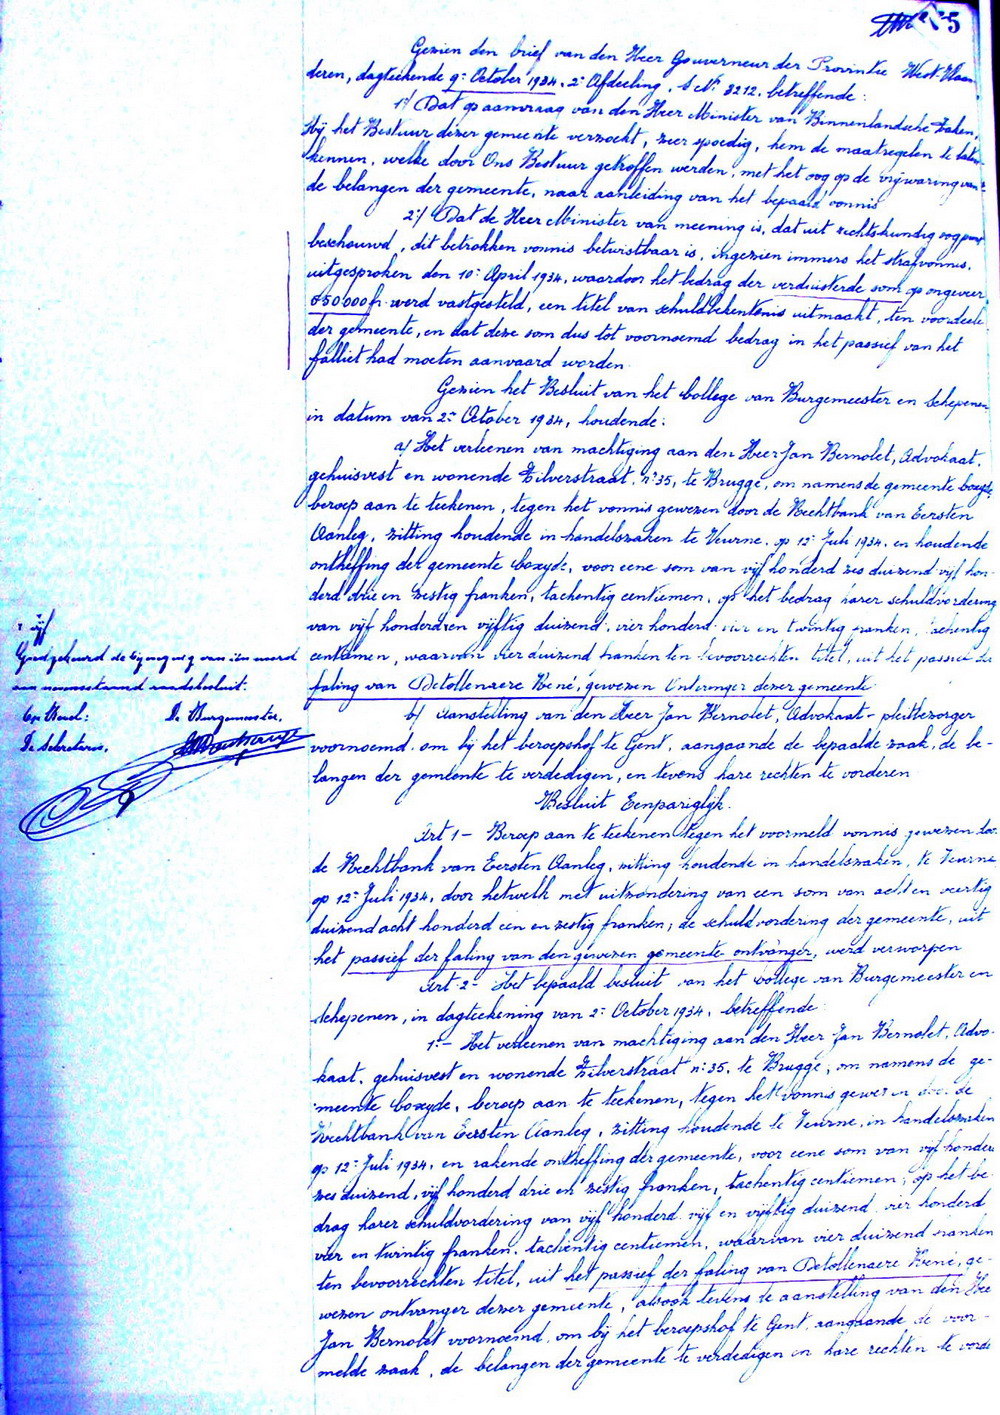 5
Gezien den brief van den Heer Gouverneur der Provintie West-Vlaan
deren, dagteekende 9n October 1934, 2e Afdeeling, Nr 3212, betreffende:
1°/ Dat op aanvraag van den Heer Minister van Binnenlandsche Zaken,
Hij het Bestuur dezer gemeente verzocht, zeer spoedig, hem de maatregelen te laten
kennen, welke door Ons Bestuur getroffen werden, met het oog op de vrijwaring van
de belangen der gemeente, naar aanleiding van het bepaald vonnis
2°/ Dat de Heer Minister van meening is, dat uit rechtskundig oogpunt
beschouwd, dit betrokken vonnis betwistbaar is, ingezien immers het strafvonnis,
uitgesproken den 10n April 1934, waardoor het bedrag der verduisterde som op ongeveer
550 000 fr. werd vastgesteld, een titel van schuldbekentenis uitmaakt, ten voordeele
der gemeente, en dat deze som dus tot voornoemd bedrag in het passief van het
falliet had moeten aanvaard worden.
Gezien het Besluit van het College van Burgemeester en Schepenen
in datum van 2n October 1934, houdende:
a/ Het verleenen van machtiging aan den Heer Jan Bernolet, Advokaat,
gehuisvest en wonende Zilverstraat, n° 35, te Brugge, om namens de gemeente Coxyde
beroep aan te teekenen, tegen het vonnis gewezen door de Rechtbank van Eersten
Aanleg, zitting houdende in handelszaken te Veurne, op 12n Juli 1934, en houdende
ontheffing der gemeente Coxyde, voor eene som van vijf honderd zes duizend vijf hon-
derd drie en zestig franken, tachentig centiemen, op het bedrag harer schuldvordering
van vijf honderd en vijftig duizend vier honderd vier en twintig franken, tachentig
centiemen, waarvan vier duizend franken ten bevoorrechten titel, uit het passief der
faling van Detollenaere René, gewezen Ontvanger dezer gemeente
b/ Aanstelling van den Heer Jan Bernolet, Advokaat-pleitbezorger
voornoemd, om bij het beroepshof te Gent, aangaande de bepaalde zaak, de be-
langen der gemeente te verdedigen, en tevens hare rechten te vorderen
Besluit Eenpariglijk.
Art 1 - Beroep aan te teekenen tegen het voormeld vonnis gewezen door
de Rechtbank van Eersten Aanleg, zitting houdende in handelszaken, te Veurne
op 12n Juli 1934, door hetwelk met uitzondering van een som van acht en veertig
duizend acht honderd een en zestig franken, de schuldvordering der gemeente, uit
het passief der faling van den gewezen gemeente ontvanger, werd verworpen
Art 2 - Het bepaald besluit van het College van Burgemeester en
Schepenen, in dagteekening van 2n October 1934, betreffende:
1° - Het verleenen van machtiging aan den Heer Jan Bernolet, Advo-
kaat, gehuisvest en wonende Zilverstraat n° 35, te Brugge, om namens de ge-
meente Coxyde, beroep aan te teekenen, tegen het vonnis gewezen door de
Rechtbank van Eersten Aanleg, zitting houdende te Veurne, in handelszaken
op 12n Juli 1934, en rakende ontheffing der gemeente, voor eene som van vijf honderd
zes duizend, vijf honderd drie en zestig franken, tachentig centiemen, op het be-
drag harer schuldvordering van vijf honderd vijf en vijftig duizend vier honderd
vier en twintig franken, tachentig centiemen, waarvan vier duizend franken
ten bevoorrechten titel, uit het passief der faling van Detollenaere René, ge-
wezen ontvanger dezer gemeente, alsook tevens te aanstelling van den Heer
Jan Bernolet voornoemd, om bij het beroepshof te Gent, aangaande de voor-
melde zaak, de belangen der gemeente te verdedigen en hare rechten te vorde
vijf
Goedgekeurd de bijvoeging van één woord
aan nevenstaand raadsbesluit.
Op Bevel: De Burgemeester,
De Secretaris,